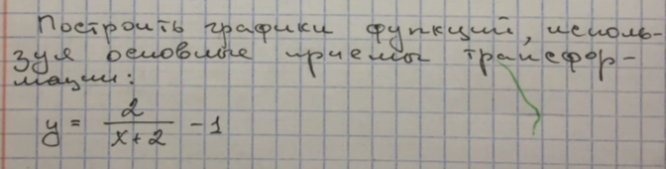 Построить графики функций, исполь-
зуя основные приемы трансфор-
мации:
y = 2/(x+2) - 1
?